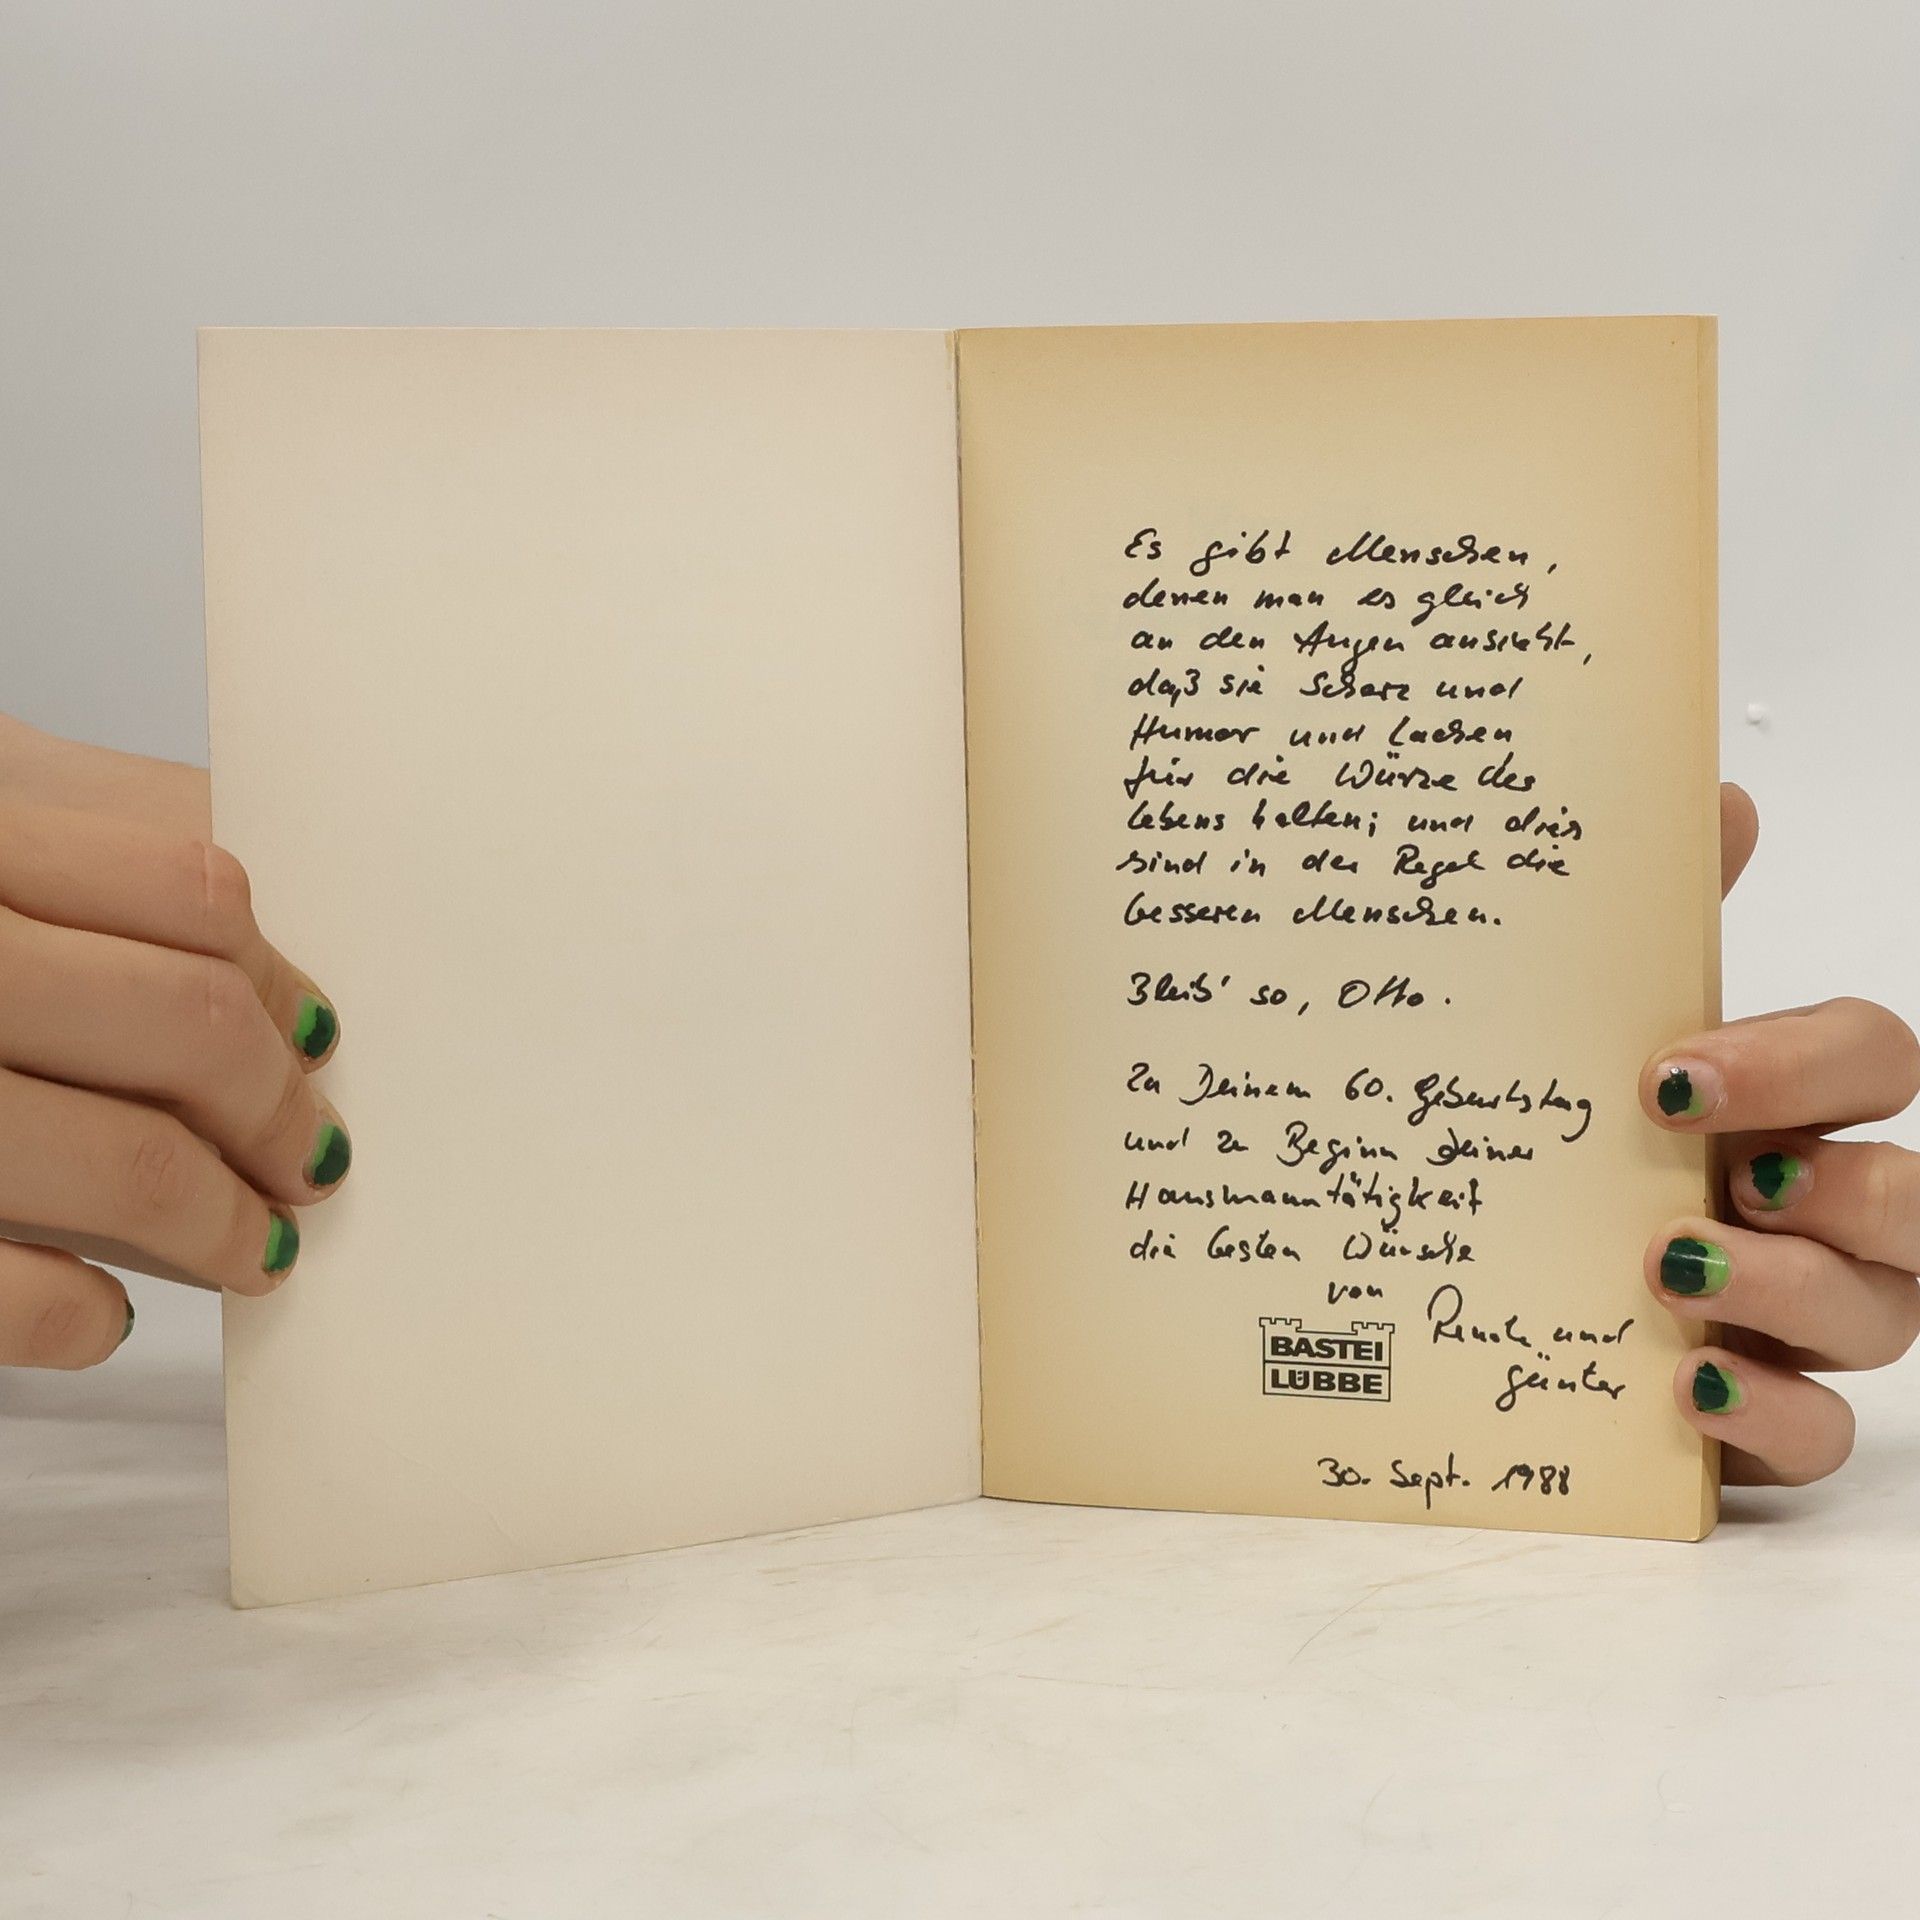 Es gibt Menschen,
denen man es gleich
an den Augen ansieht,
daß sie Scherz und
Humor und Lachen
für die Würze des
Lebens halten; und dies
sind in der Regel die
besseren Menschen.
Bleib' so, Otto.
Zu Deinem 60. Geburtstag
und zu Beginn Deiner
Hausmanntätigkeit
die besten Wünsche
von
Renate und
Günter
BASTEI
LÜBBE
30. Sept. 1988